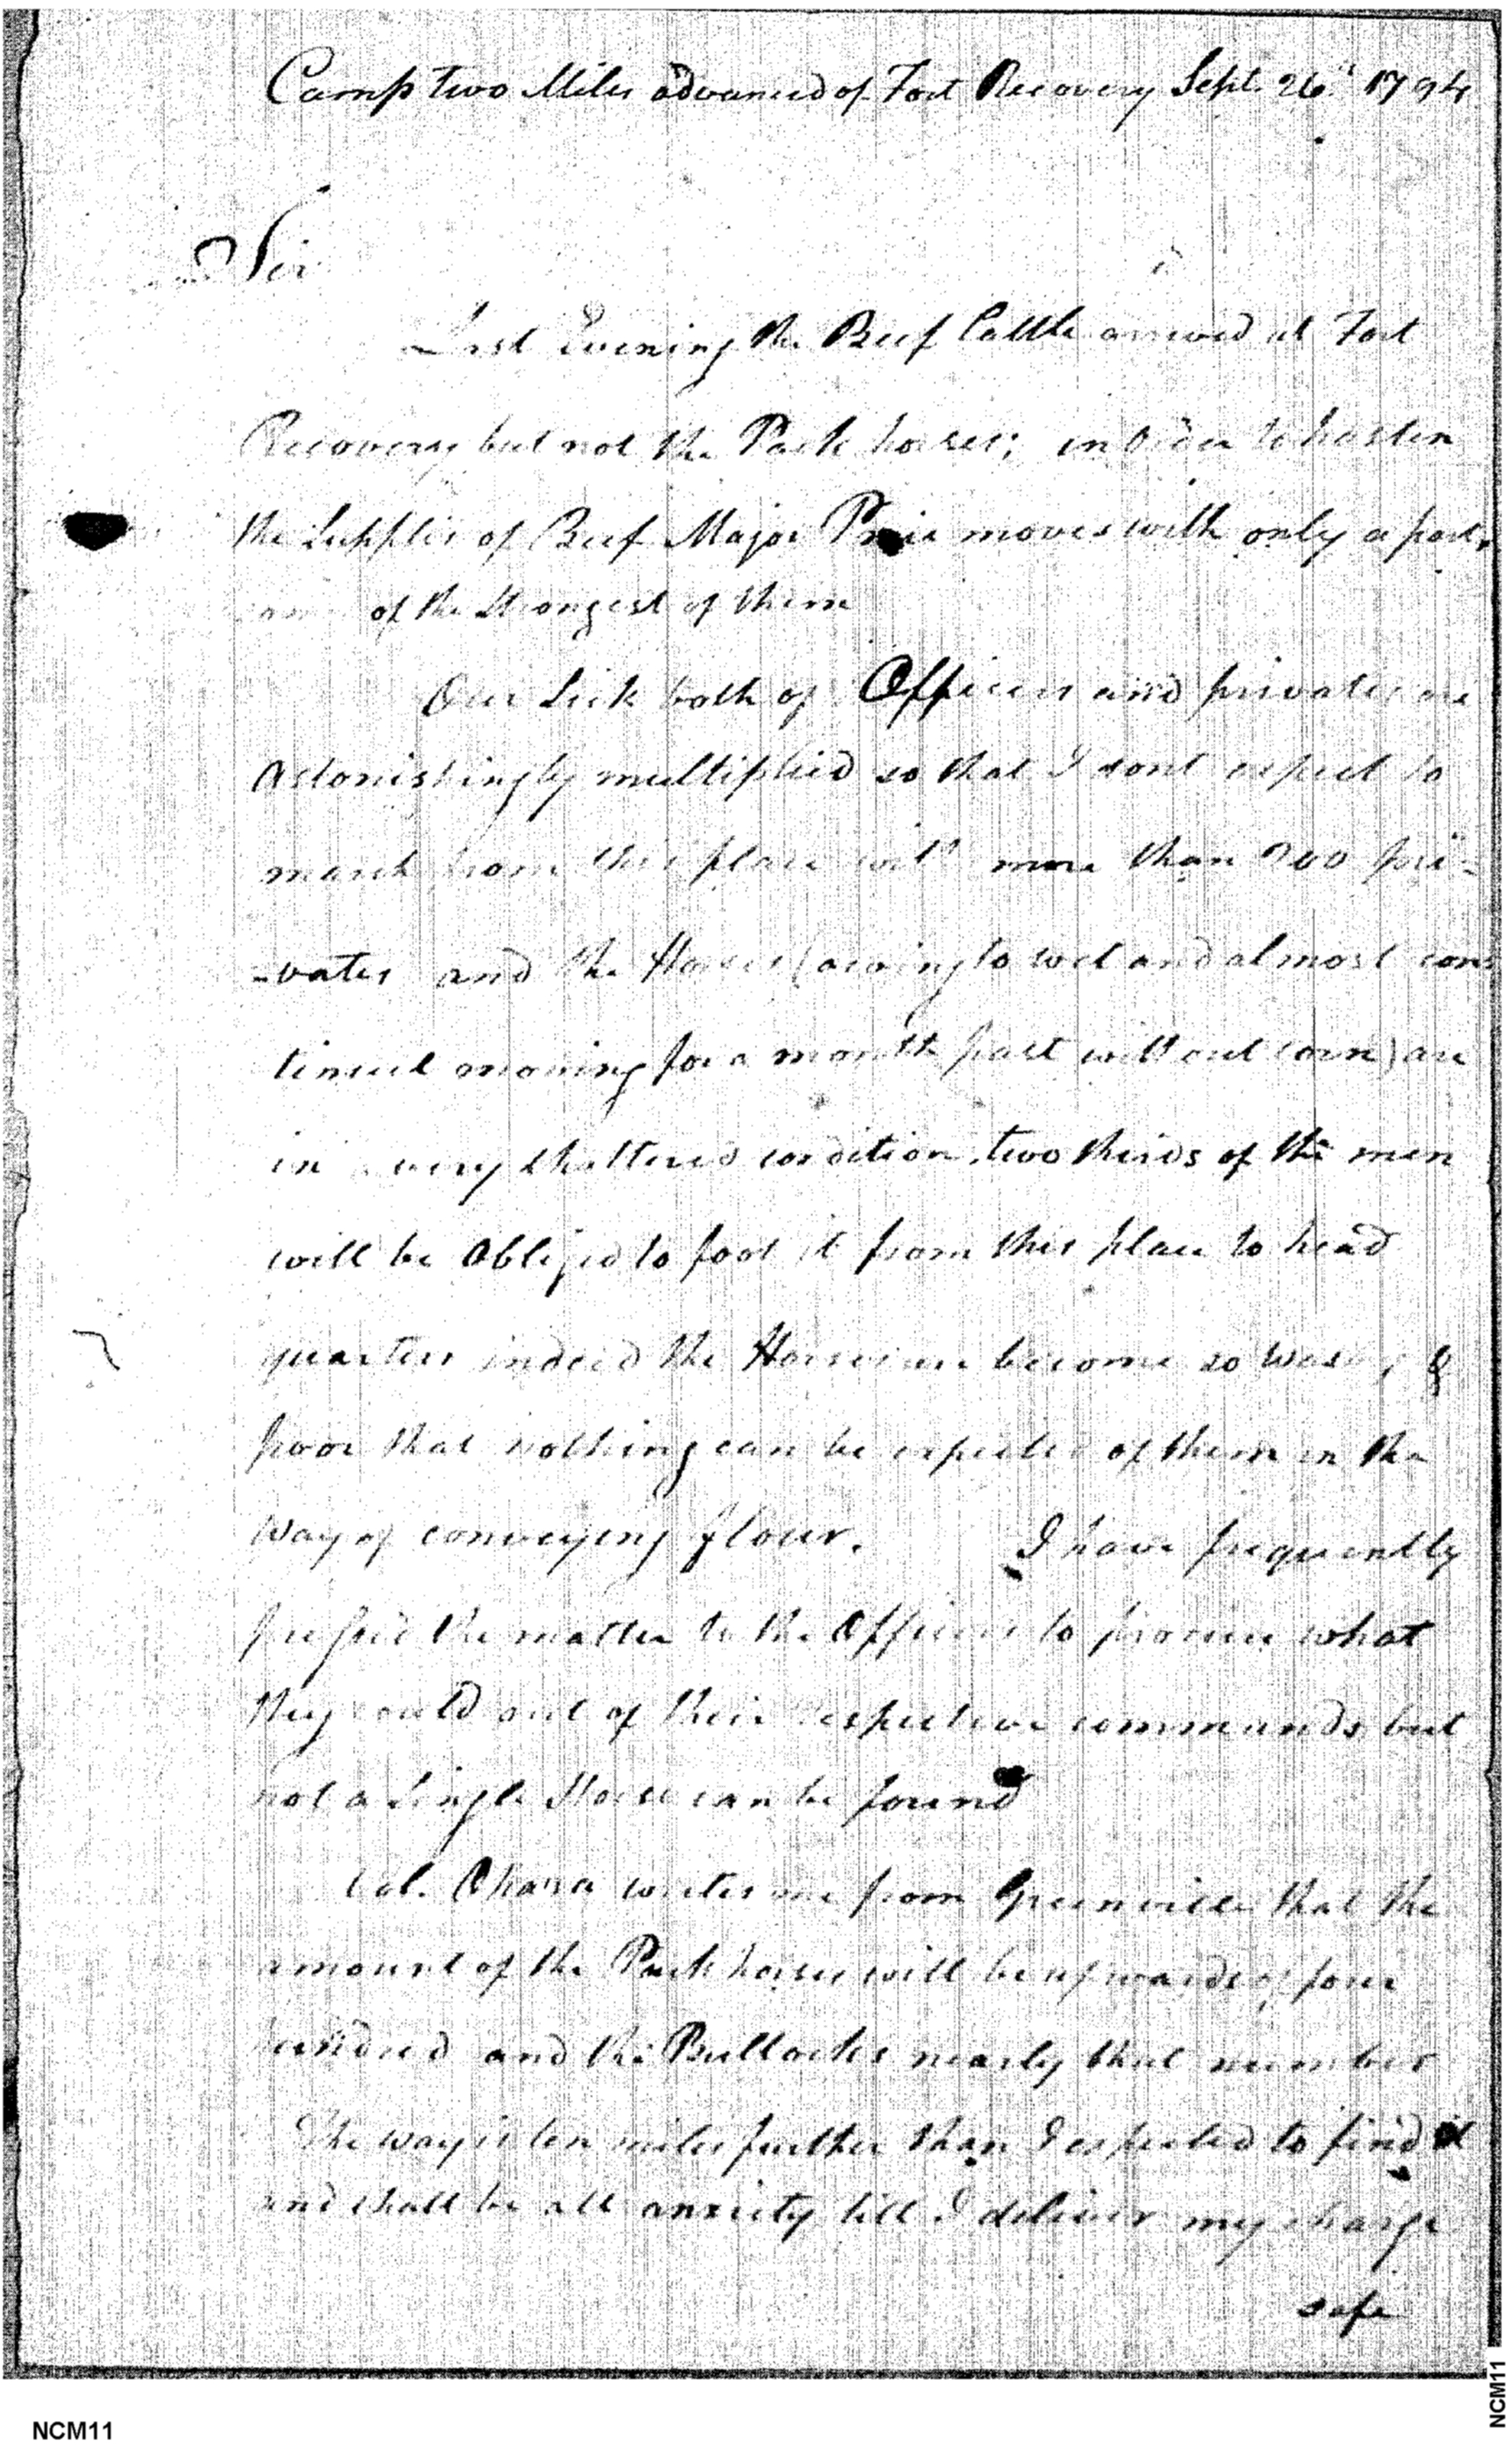 Camp two Miles advanced of Fort Recovery Sept. 26th 1794
Sir
Last Evening the Beef Cattle arrived at Fort
Recovery but not the Pack horses; in order to hasten
the Supplies of Beef Major Price moves with only a part
of the Strongest of them
Our Sick both of Officers and privates are
astonishingly multiplied so that I dont expect to
march from this place with more than 700 pri-
-vates and the Horses (owing to wet and almost con-
tinual moving for a month past without corn) are
in a very shattered condition, two thirds of the men
will be obliged to foot it from this place to head
quarters indeed the Horses are become so weak &
poor that nothing can be expected of them in the
way of conveying flour. I have frequently
pressed the matter to the Officers to procure what
they could out of their respective commands but
not a Single Horse can be found
Col. Ohara writes me from Greenville that the
amount of the Pack horses will be upwards of four
hundred and the Bullocks nearly that number
The way is ten miles further than I expected to find it
and shall be all anxiety till I deliver my charge
safe
NCM11
NCM11